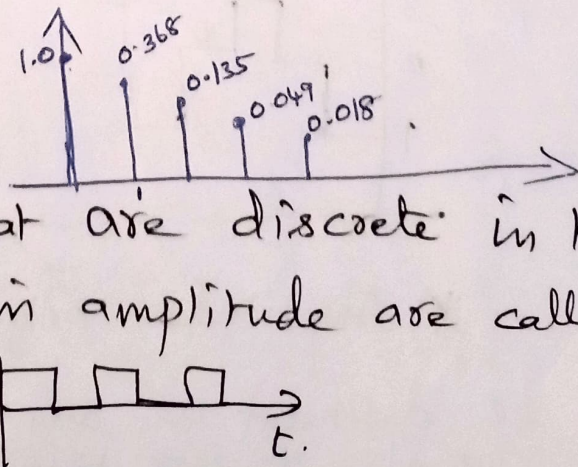 1.0 0.368 0.135 0.049 0.018
are discrete in
in amplitude are call
t.